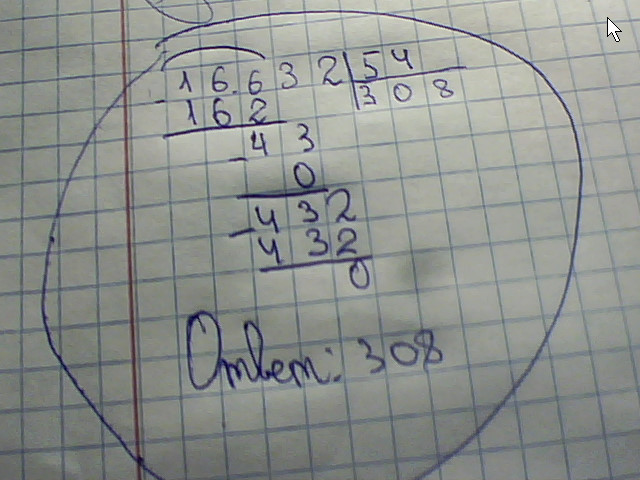 16632 54
162 308
43
0
432
432
0
Ответ: 308